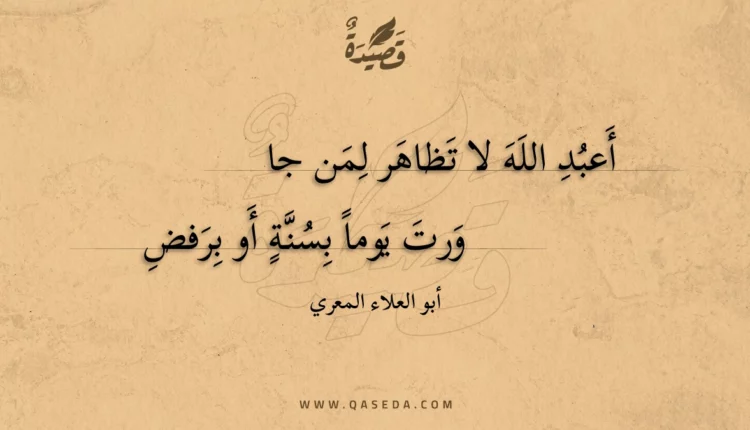 قَصِيدَةٌ
أَعبُدِ اللَهَ لا تَظاهَر لِمَن جا
وَرتَ يَوماً بِسُنَّةٍ أَو بِرَفضِ
أبو العلاء المعري
WWW.QASEDA.COM